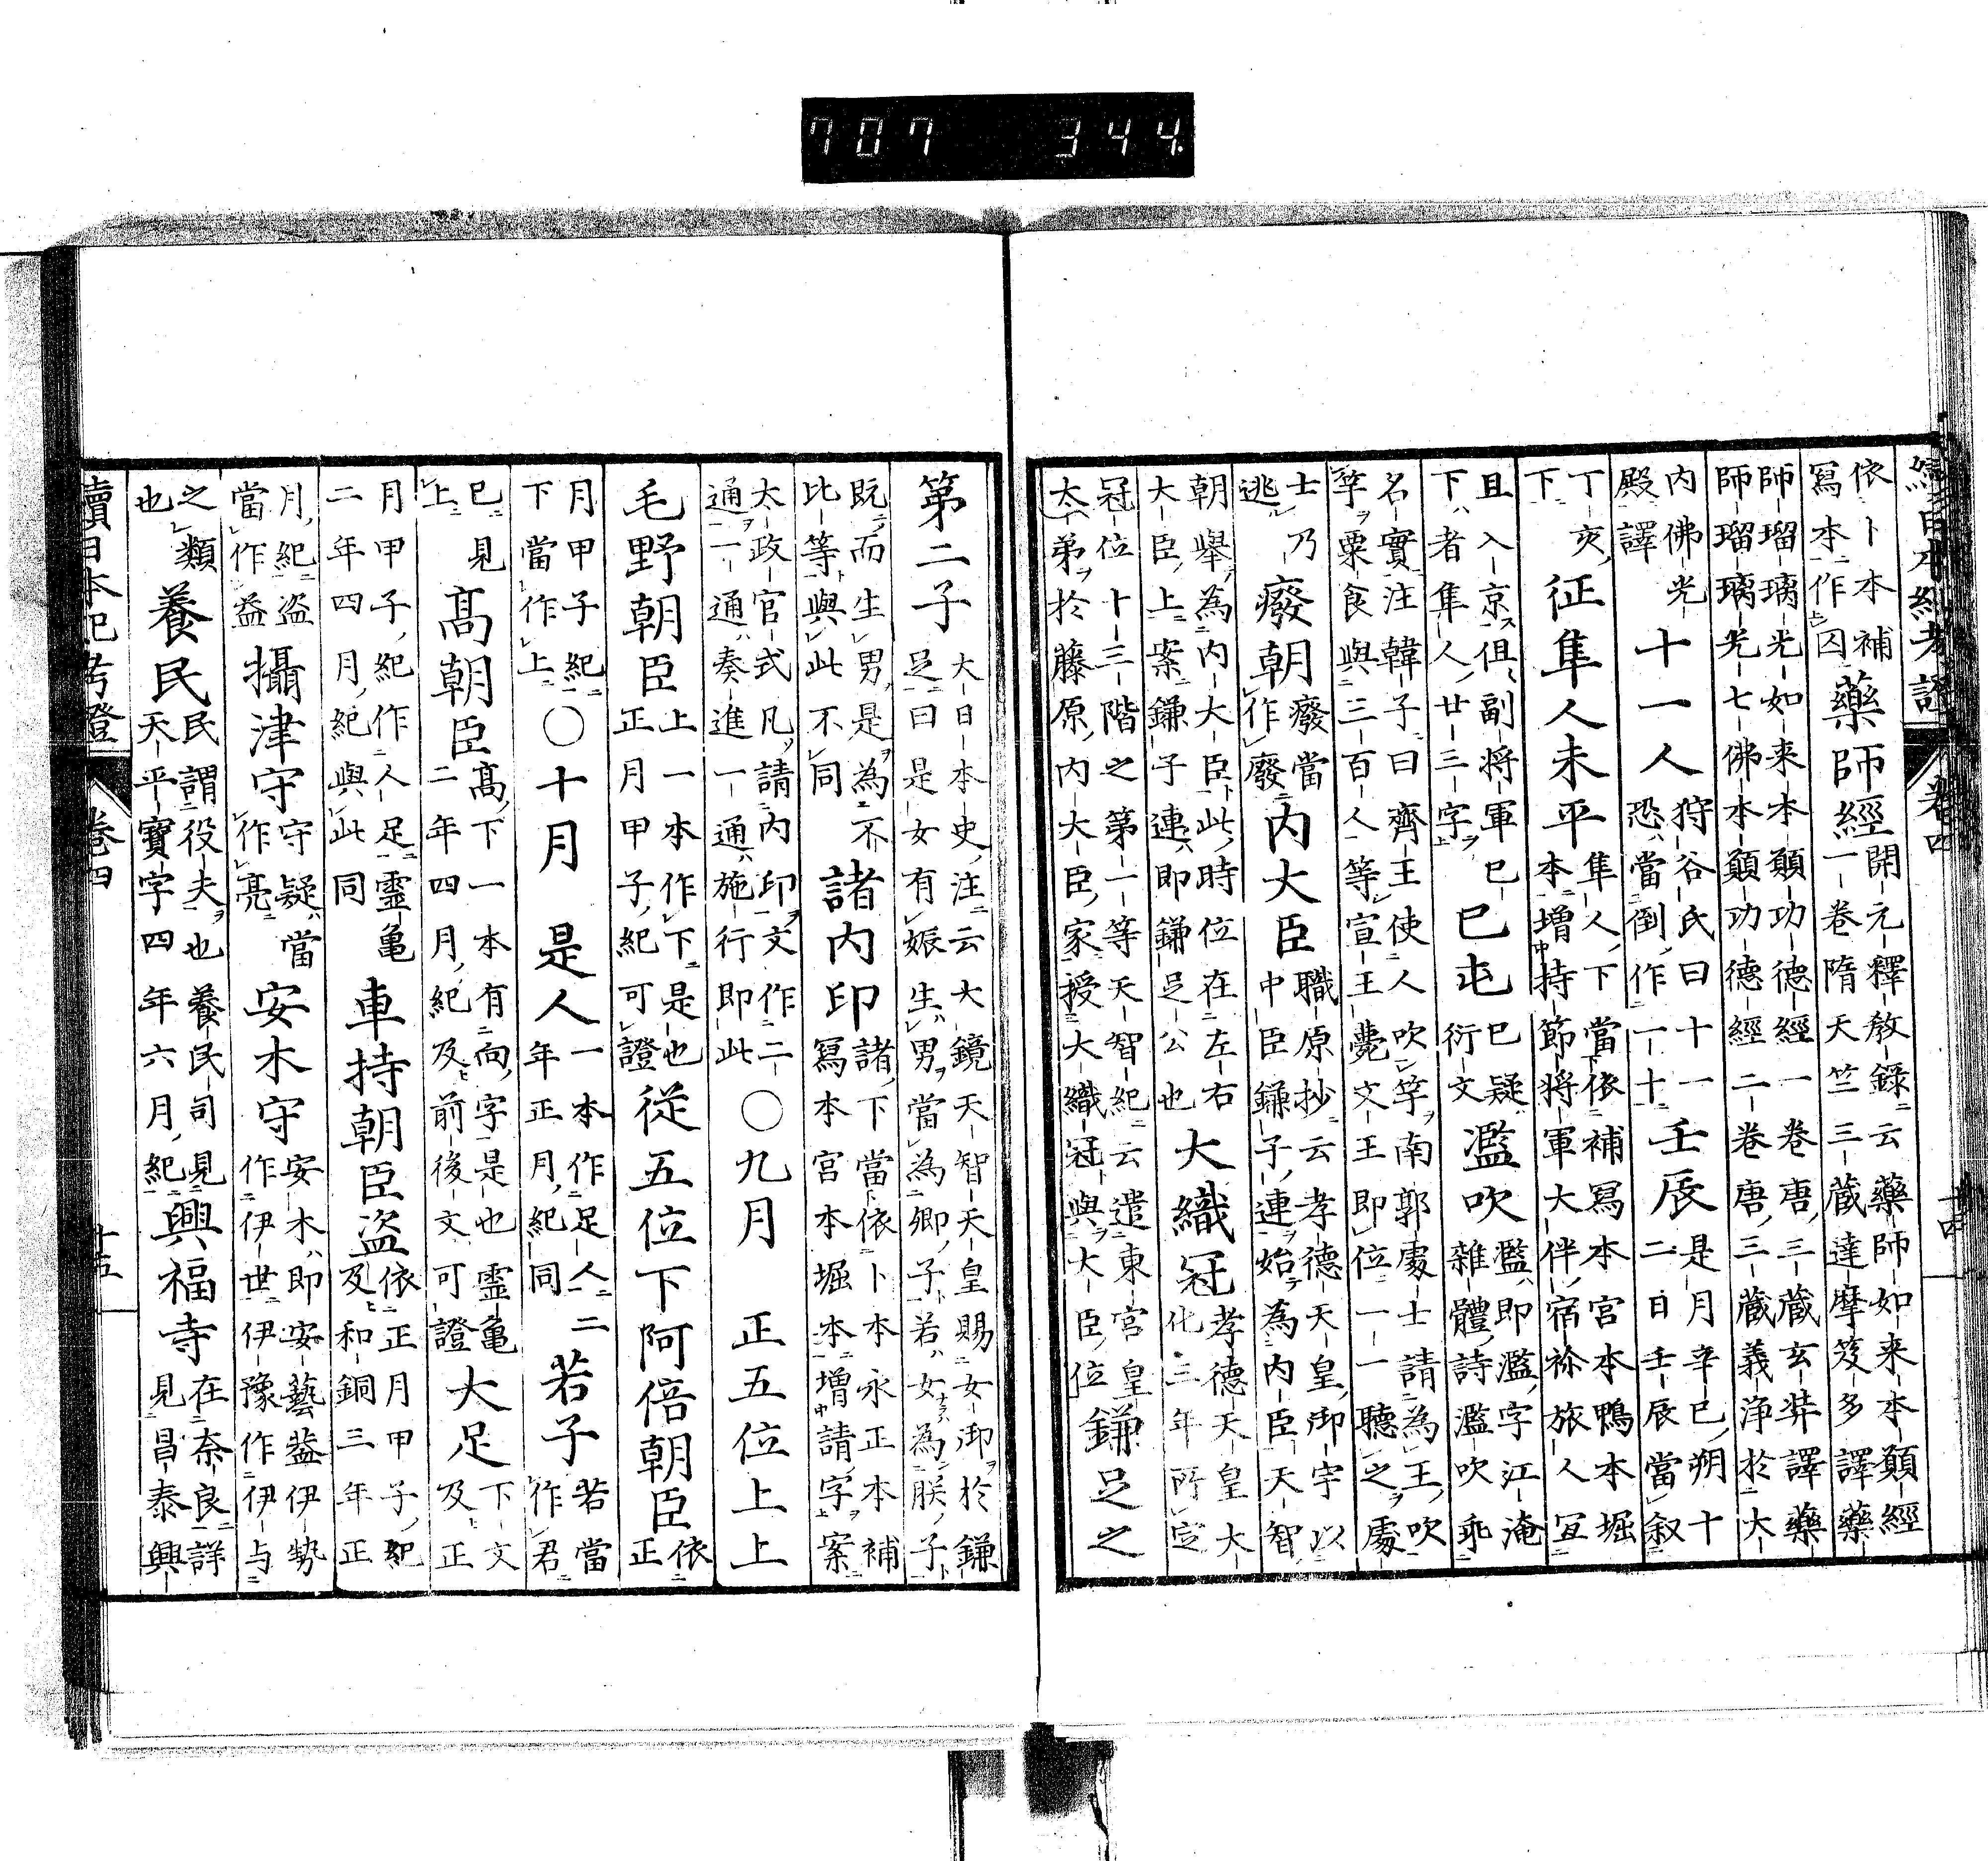 707 344.
續日本紀考證 卷四 十四
依卜本補
寫本作囚
藥師經
開元釋教錄云藥師如来本願經
一卷隋天竺三藏達摩笈多譯藥
師瑠璃光如来本願功德經一卷唐三藏玄奘譯藥
師瑠璃光七佛本願功德經二卷唐三藏義淨於大
內佛光
殿譯
十一人
狩谷氏曰十一
恐當倒作一十
壬辰
是月辛巳朔十
二日壬辰當叙
丁亥
下
征隼人未平
隼人下當依補寫本宮本鴨本堀
本增持節將軍大伴宿祢旅人宜
且入京但副將軍巳
下者隼人廿三字
巳屯
巳疑
衍文
濫吹
濫即濫字江淹
雜體詩濫吹乖
名實注韓子曰齊王使人吹竽南郭處士請為王吹
竽粟食與三百人等宣王薨文王即位一一聽之處
士乃
逃
癈朝
癈當
作廢
內大臣
職原抄云孝德天皇御宇以
中臣鎌子連始為內臣天智
朝舉為內大臣此時位在左右
大臣上案鎌子連即鎌足公也
大織冠
孝德天皇大
化三年所定
冠位十三階之第一等天智紀云遣東宮皇
太弟於藤原內大臣家授大織冠與大臣位
鎌足之
第二子
大日本史注云大鏡天智天皇賜女御於鎌
足曰是女有娠生男當為卿子若女為朕子
既而生男是為不
比等與此不同
諸內印
諸下當依卜本永正本補
寫本宮本堀本增請字案
太政官式凡請內印文作二
通一通奏進一通施行即此
〇九月
正五位上上
毛野朝臣
上一本作下是也
正月甲子紀可證
從五位下阿倍朝臣
依
正
月甲子紀
下當作上
〇十月
是人
一本作足人二
年正月紀同
若子
若當
作君
巳見
上
髙朝臣
髙下一本有向字是也靈亀
二年四月紀及前後文可證
大足
下文
及正
月甲子紀作人足靈亀
二年四月紀與此同
車持朝臣盜
依正月甲子紀
及和銅三年正
月紀盜
當作益
攝津守
守疑當
作亮
安木守
安木即安藝蓋伊勢
作伊世伊豫作伊与
之類
也
養民
民謂役夫也養民司見
天平寶字四年六月紀
興福寺
在奈良詳
見昌泰興
續日本紀考證 卷四 十五